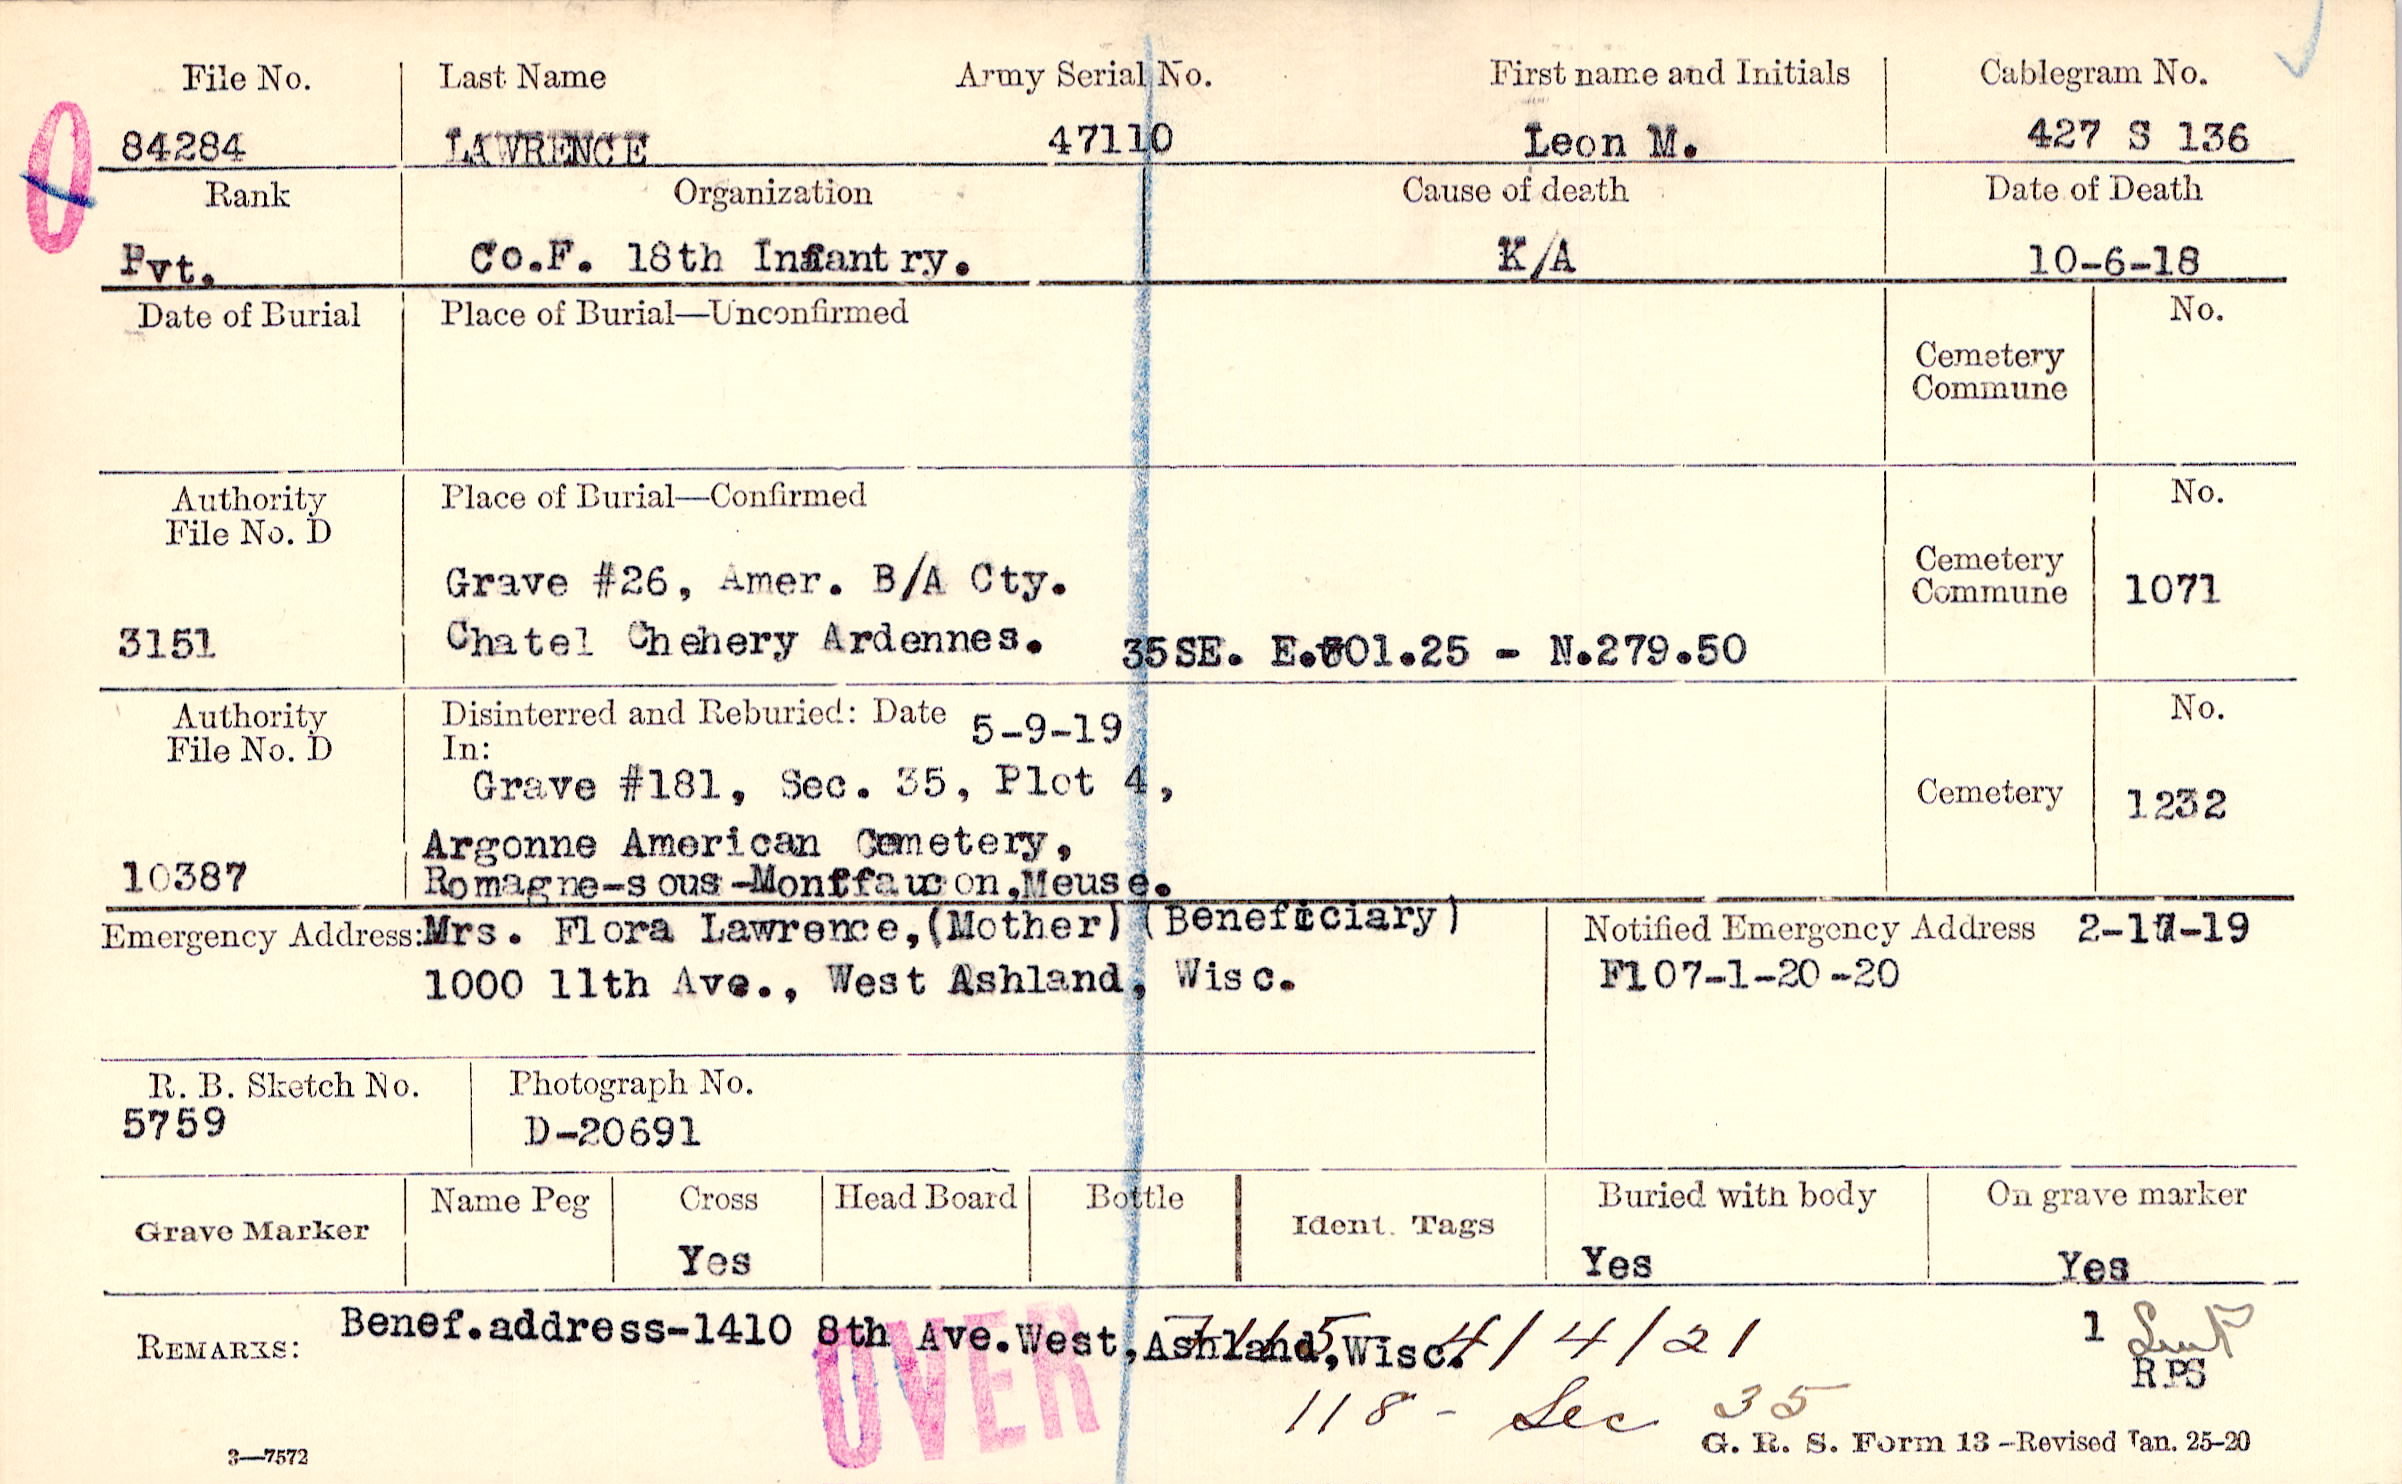 File No. Last Name Army Serial No. First name and Initials Cablegram No.
84284 LAWRENCE 47110 Leon M. 427 S 136
Rank Organization Cause of death Date of Death
Pvt. Co.F. 18th Infantry. K/A 10-6-18
Date of Burial Place of Burial—Unconfirmed No.
Cemetery
Commune
Authority Place of Burial—Confirmed No.
File No. D
Grave #26, Amer. B/A Cty. Cemetery
Commune 1071
3151 Chatel Chehery Ardennes. 35SE. E. 01.25 - N.279.50
Authority Disinterred and Reburied: Date 5-9-19 No.
File No. D In:
Grave #181, Sec. 35, Plot 4, Cemetery 1232
Argonne American Cemetery,
10387 Romagne-sous-Montfaucon,Meuse.
Emergency Address: Mrs. Flora Lawrence,(Mother)(Beneficiary) Notified Emergency Address 2-17-19
1000 11th Ave., West Ashland, Wisc. F107-1-20-20
R. B. Sketch No. Photograph No.
5759 D-20691
Grave Marker Name Peg Cross Head Board Bottle Ident. Tags Buried with body On grave marker
Yes Yes Yes
REMARKS: Benef.address-1410 8th Ave.West,Ashland,Wisc. 4/4/21 1
RPS
OVER
118 - Sec 35
3—7572 G. R. S. Form 13 -Revised Jan. 25-20